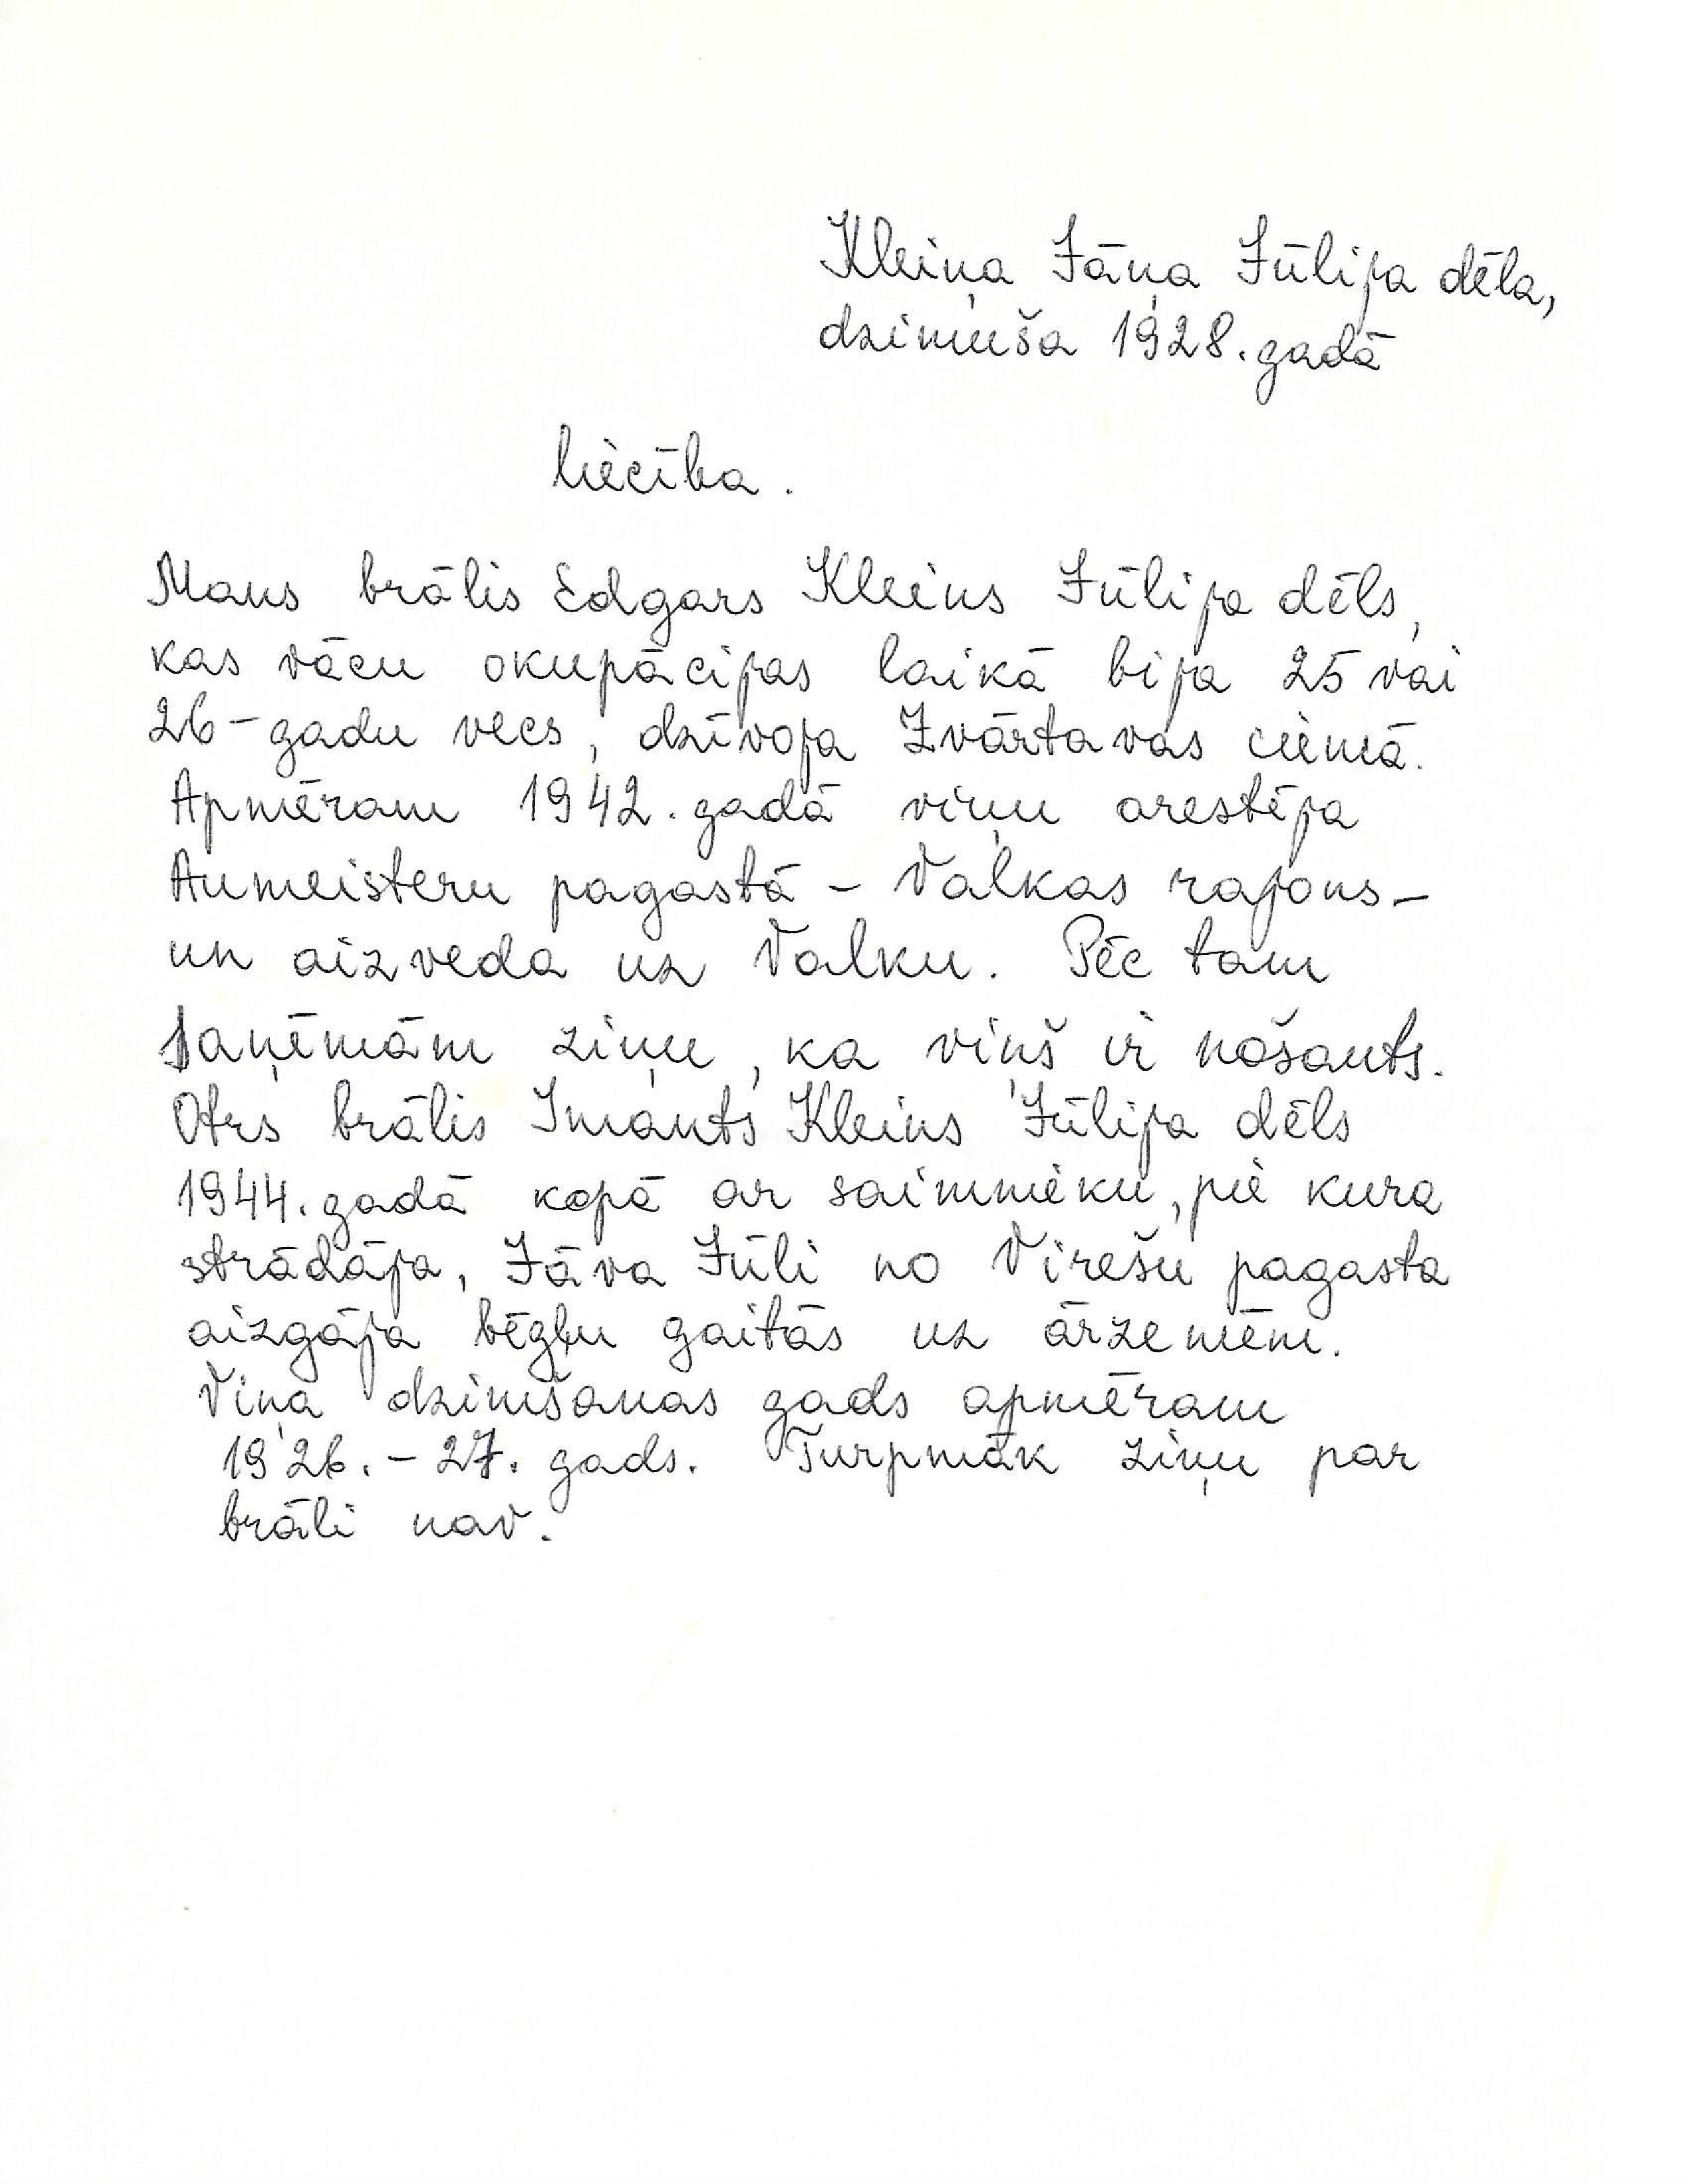 Kleiņa Jāņa Jūlija dēla,
dzimuša 1928. gadā
liecība.
Mans brālis Edgars Kleins Jūlija dēls,
kas vācu okupācijas laikā bija 25 vai
26-gadu vecs, dzīvoja Zvārtavas ciemā.
Apmēram 1942. gadā viņu arestēja
Aumeisteru pagastā - Valkas rajons -
un aizveda uz Valku. Pēc tam
saņēmām ziņu, ka viņš ir nošauts.
Otrs brālis Imants Kleins Jūlija dēls
1944. gadā kopā ar saimnieku, pie kura
strādāja, Jāva Jūli no Virešu pagasta
aizgāja bēgļu gaitās uz ārzemēm.
Viņa dzimšanas gads apmēram
1926. - 27. gads. Turpmāk ziņu par
brāli nav.